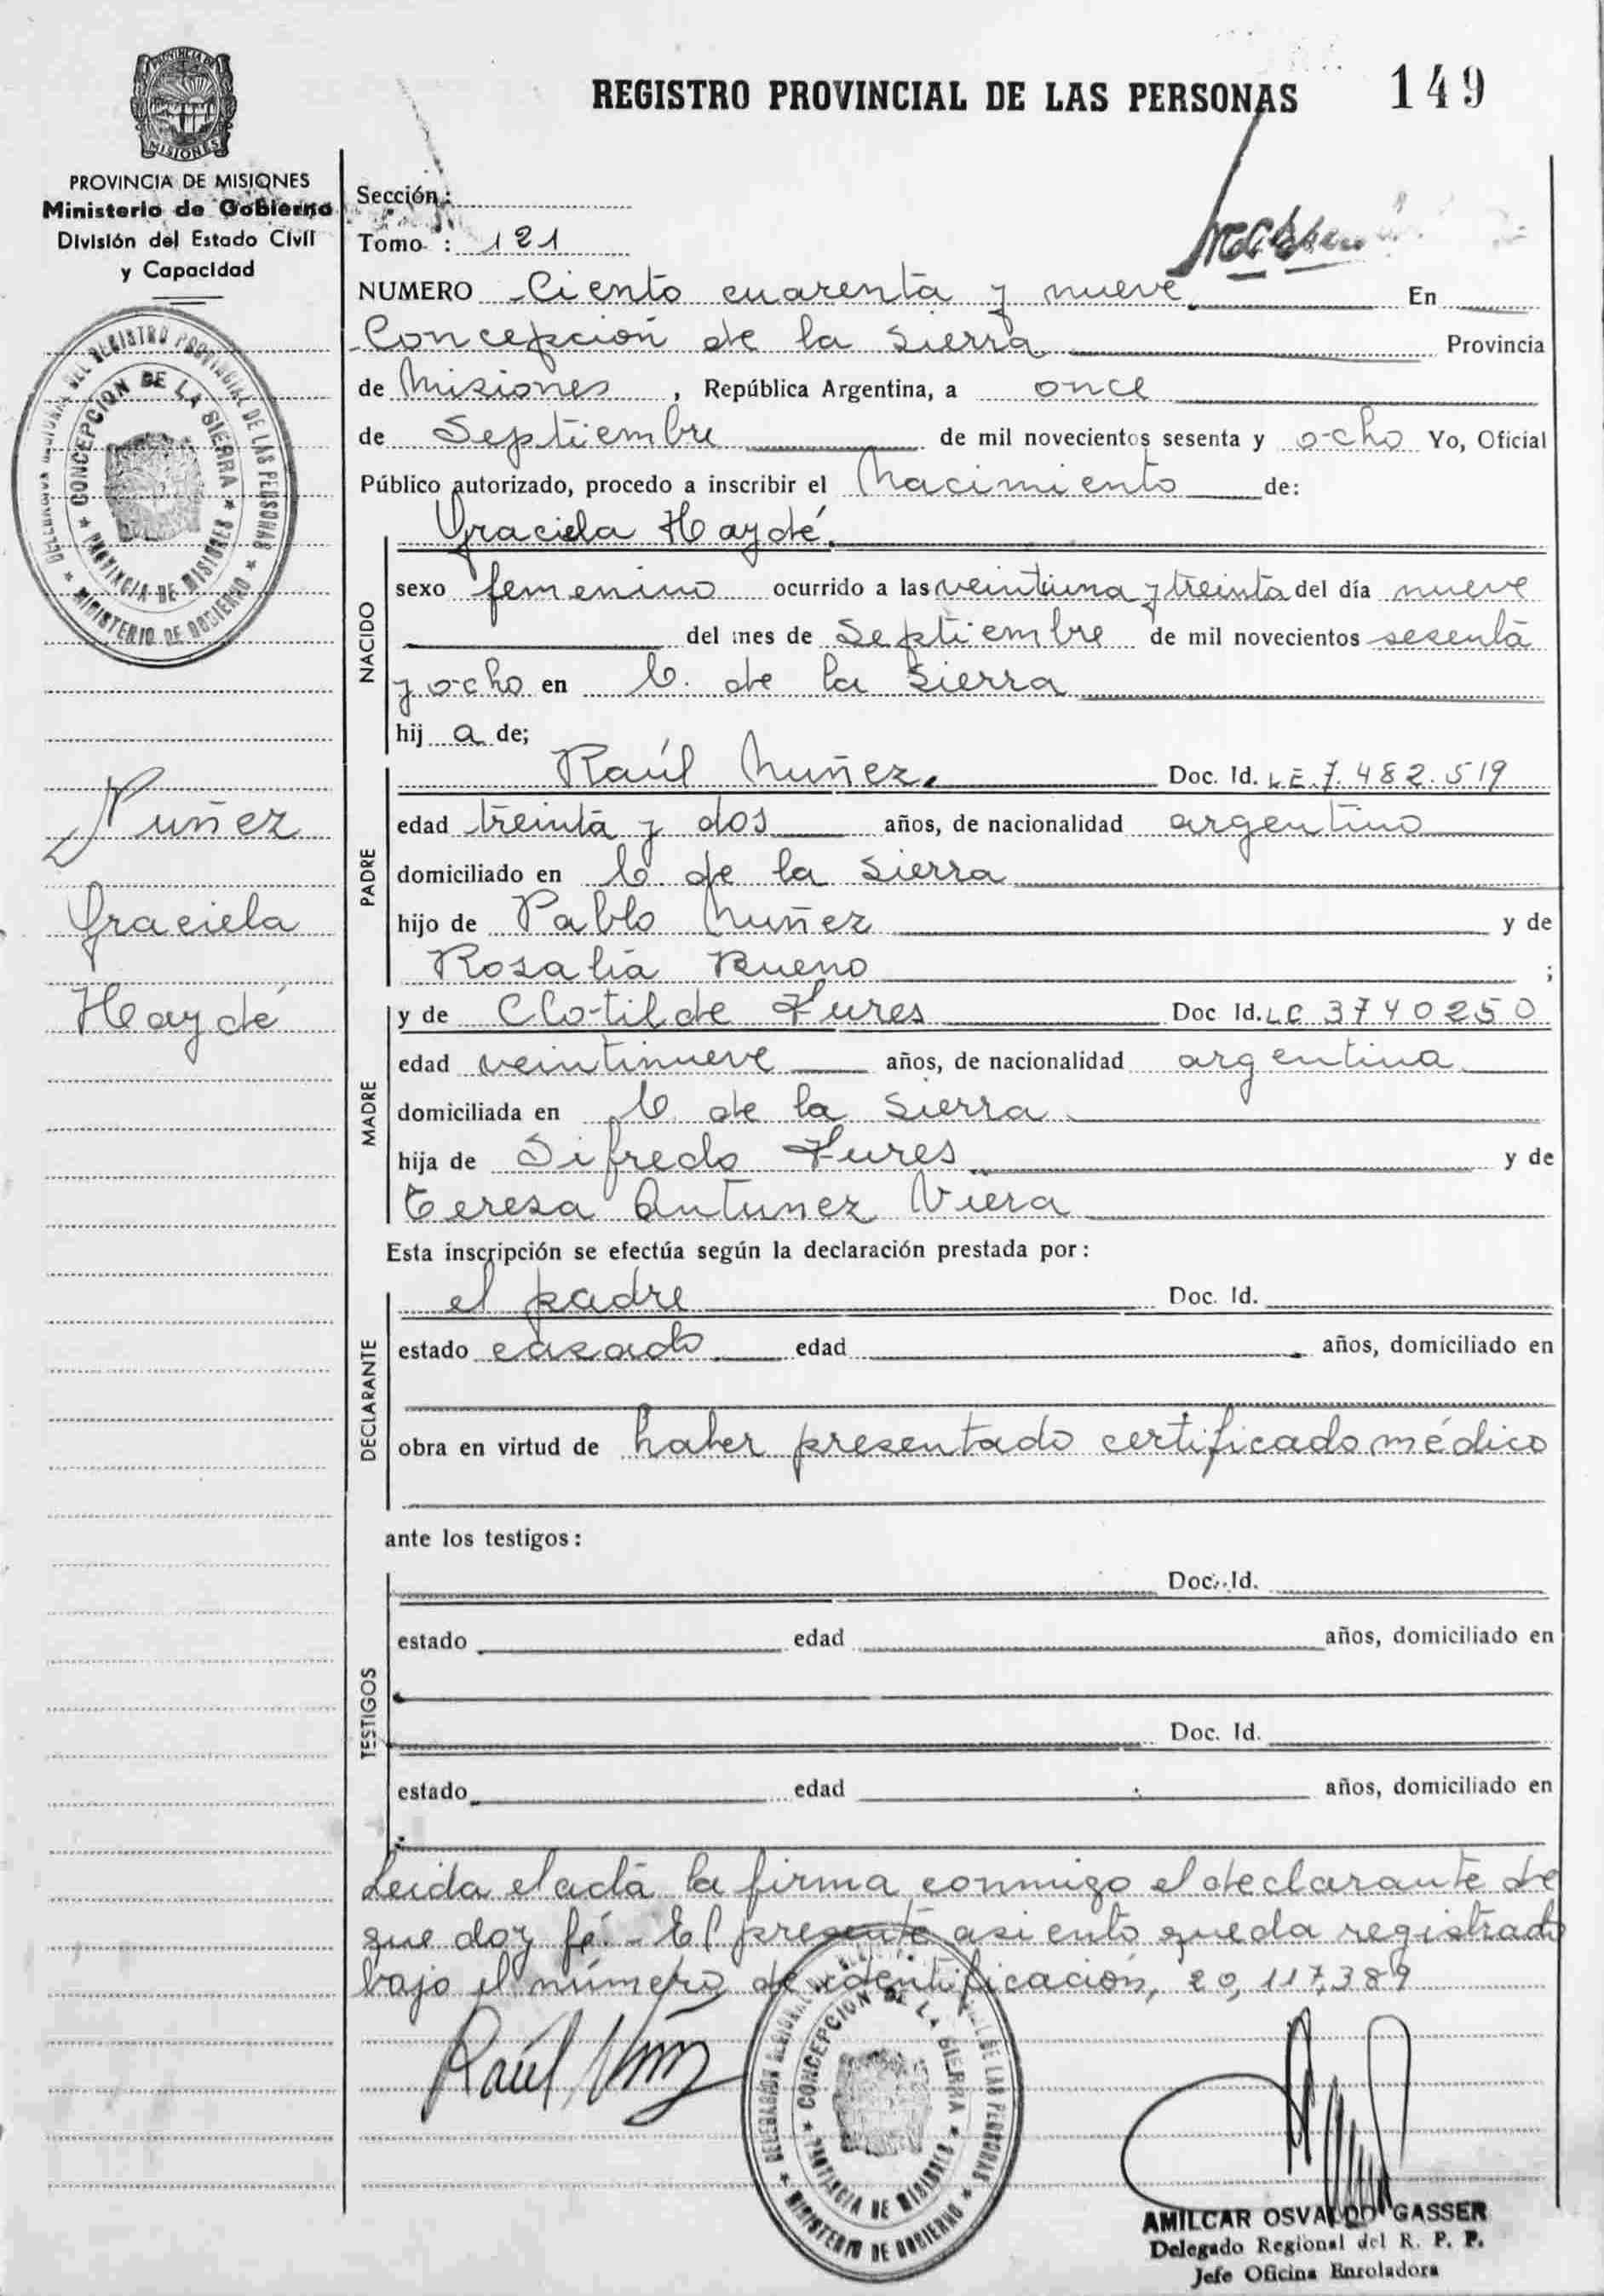 REGISTRO PROVINCIAL DE LAS PERSONAS 149
PROVINCIA DE MISIONES
MISIONES
PROVINCIA DE MISIONES
Ministerio de Gobierno
División del Estado Civil
y Capacidad
Sección:
Tomo : 121
NUMERO Ciento cuarenta y nueve En
Concepción de la Sierra Provincia
de Misiones, República Argentina, a once
de Septiembre de mil novecientos sesenta y ocho Yo, Oficial
Público autorizado, procedo a inscribir el Nacimiento de:
REGISTRO PROVINCIAL DE LAS PERSONAS
CONCEPCION DE LA SIERRA
PROVINCIA DE MISIONES
MINISTERIO DE GOBIERNO
NACIDO
Graciela Haydé
sexo femenino ocurrido a las veintiuna y treinta del día nueve
del mes de Septiembre de mil novecientos sesenta
y ocho en C. de la Sierra
hij a de;
PADRE
Raúl Nuñez. Doc. Id. LE. 7.482.519
edad treinta y dos años, de nacionalidad argentino
domiciliado en C. de la Sierra
hijo de Pablo Nuñez y de
Rosalía Bueno ;
Nuñez
Graciela
Haydé
MADRE
y de Clotilde Fures Doc Id. LC 3740250
edad veintinueve años, de nacionalidad argentina
domiciliada en C. de la Sierra
hija de Sifredo Fures y de
Teresa Antunez Viera
Esta inscripción se efectúa según la declaración prestada por:
DECLARANTE
el padre Doc. Id.
estado casado edad años, domiciliado en
obra en virtud de haber presentado certificado médico
ante los testigos:
TESTIGOS
Doc. Id.
estado edad años, domiciliado en
Doc. Id.
estado edad años, domiciliado en
Leida el acta la firma conmigo el declarante de
que doy fé.- El presente asiento queda registrado
bajo el número de identificación, 20,117,389
Raúl Nuñez
CONCEPCION DE LA SIERRA
PROVINCIA DE MISIONES
MINISTERIO DE GOBIERNO
AMILCAR OSVALDO GASSER
Delegado Regional del R. P. P.
Jefe Oficina Enroladora